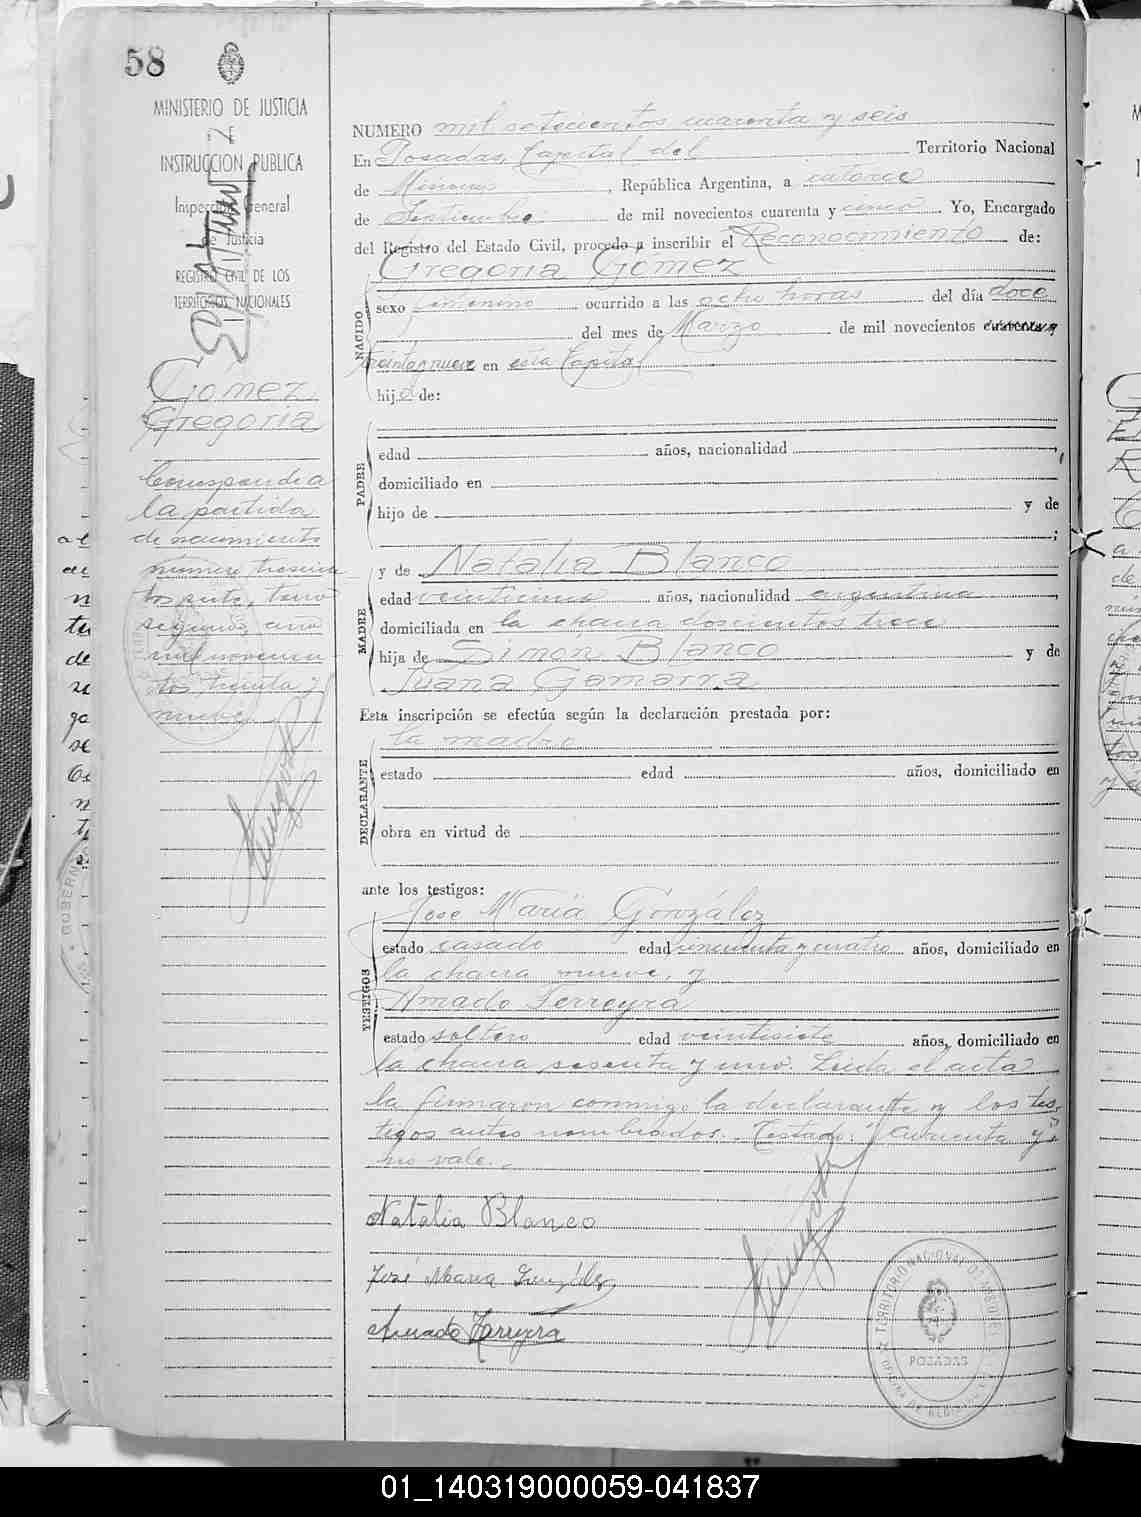 58
MINISTERIO DE JUSTICIA
E
INSTRUCCION PUBLICA
Inspección General
de Justicia
REGISTRO CIVIL DE LOS
TERRITORIOS NACIONALES
Gomez
Gregoria
Corresponde a
la partida
de nacimiento
número trescien
tos siete, tomo
segundo, año
mil novecien
tos treinta y
nueve.
NUMERO mil setecientos cuarenta y seis
En Posadas, Capital del Territorio Nacional
de Misiones, República Argentina, a catorce
de Septiembre de mil novecientos cuarenta y cinco. Yo, Encargado
del Registro del Estado Civil, procedo a inscribir el Reconocimiento de:
Gregoria Gómez
NACIDO
sexo femenino ocurrido a las ocho horas del día doce
del mes de Marzo de mil novecientos cuarenta y
treinta y nueve en esta Capital
hijo de:
PADRE
edad años, nacionalidad ,
domiciliado en
hijo de y de
;
y de Natalia Blanco
MADRE
edad veinticinco años, nacionalidad argentina ,
domiciliada en la chacra doscientos trece
hija de Simón Blanco y de
Juana Gamarra
Esta inscripción se efectúa según la declaración prestada por:
la madre
DECLARANTE
estado edad años, domiciliado en
obra en virtud de
ante los testigos:
José María González
TESTIGOS
estado casado edad cincuenta y cuatro años, domiciliado en
la chacra nueve, y
Amado Ferreyra
estado soltero edad veintisiete años, domiciliado en
la chacra sesenta y uno. Leída el acta
la firmaron conmigo la declarante y los tes-
tigos antes nombrados. Testado: "cuarenta y"
no vale.
Natalia Blanco
José María González
Amado Ferreyra
TERRITORIO NACIONAL DE MISIONES
POSADAS
01_140319000059-041837